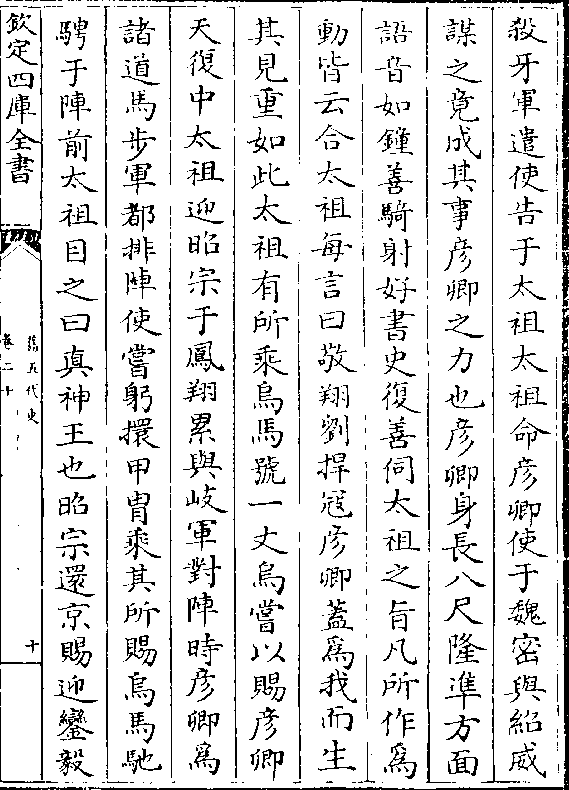 殺牙軍遣使告于太祖太祖命彦卿使于魏密與紹威
謀之竟成其事彦卿之力也彦卿身長八尺隆準方面
語音如鐘善騎射好書史復善伺太祖之旨凡所作爲
動皆云合太祖每言曰敬翔劉捍寇彦卿蓋爲我而生
其見重如此太祖有所乘烏馬號一丈烏嘗以賜彦卿
天復中太祖迎昭宗于鳳翔累與岐軍對陣時彦卿爲
諸道馬步軍都排陣使嘗躬擐甲胄乘其所賜烏馬馳
騁于陣前太祖目之曰真神王也昭宗還京賜迎鑾毅
欽定四庫全書
舊五代史
卷二十
十